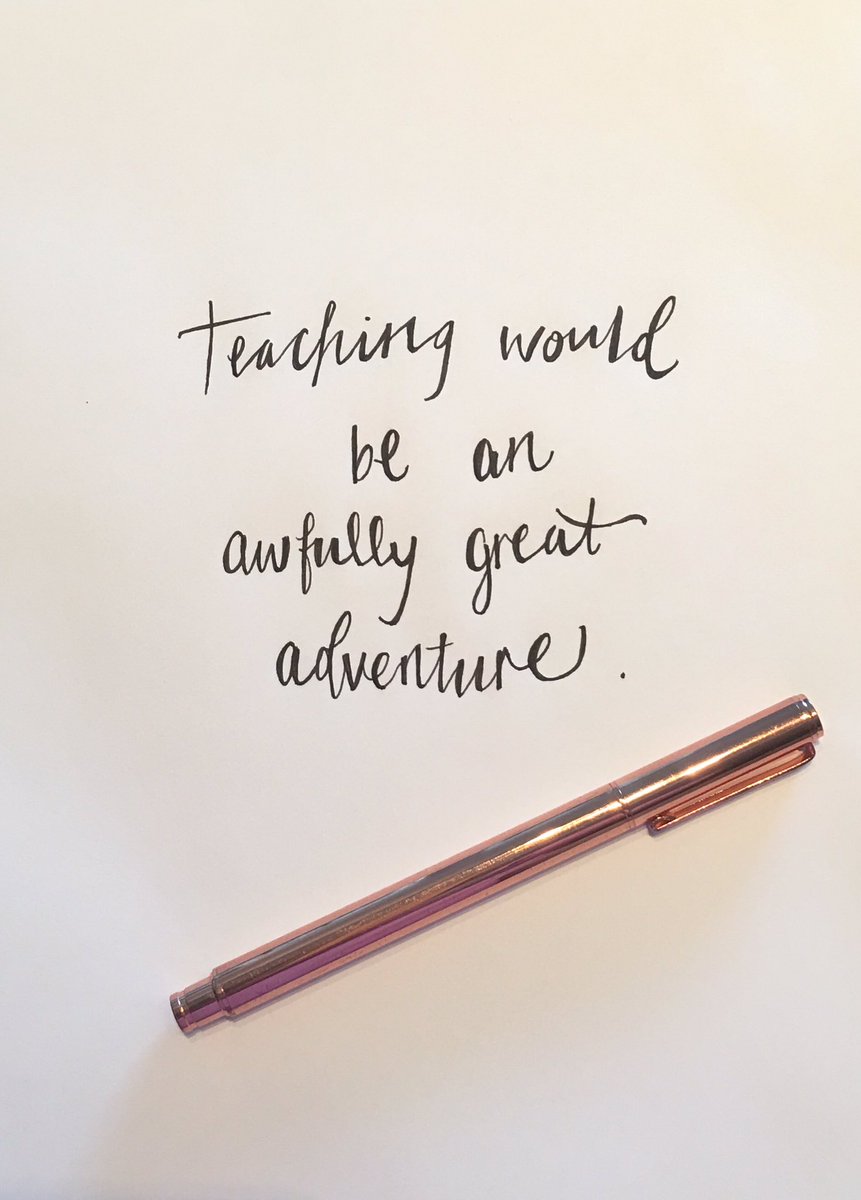 Teaching would
be an
awfully great
adventure.